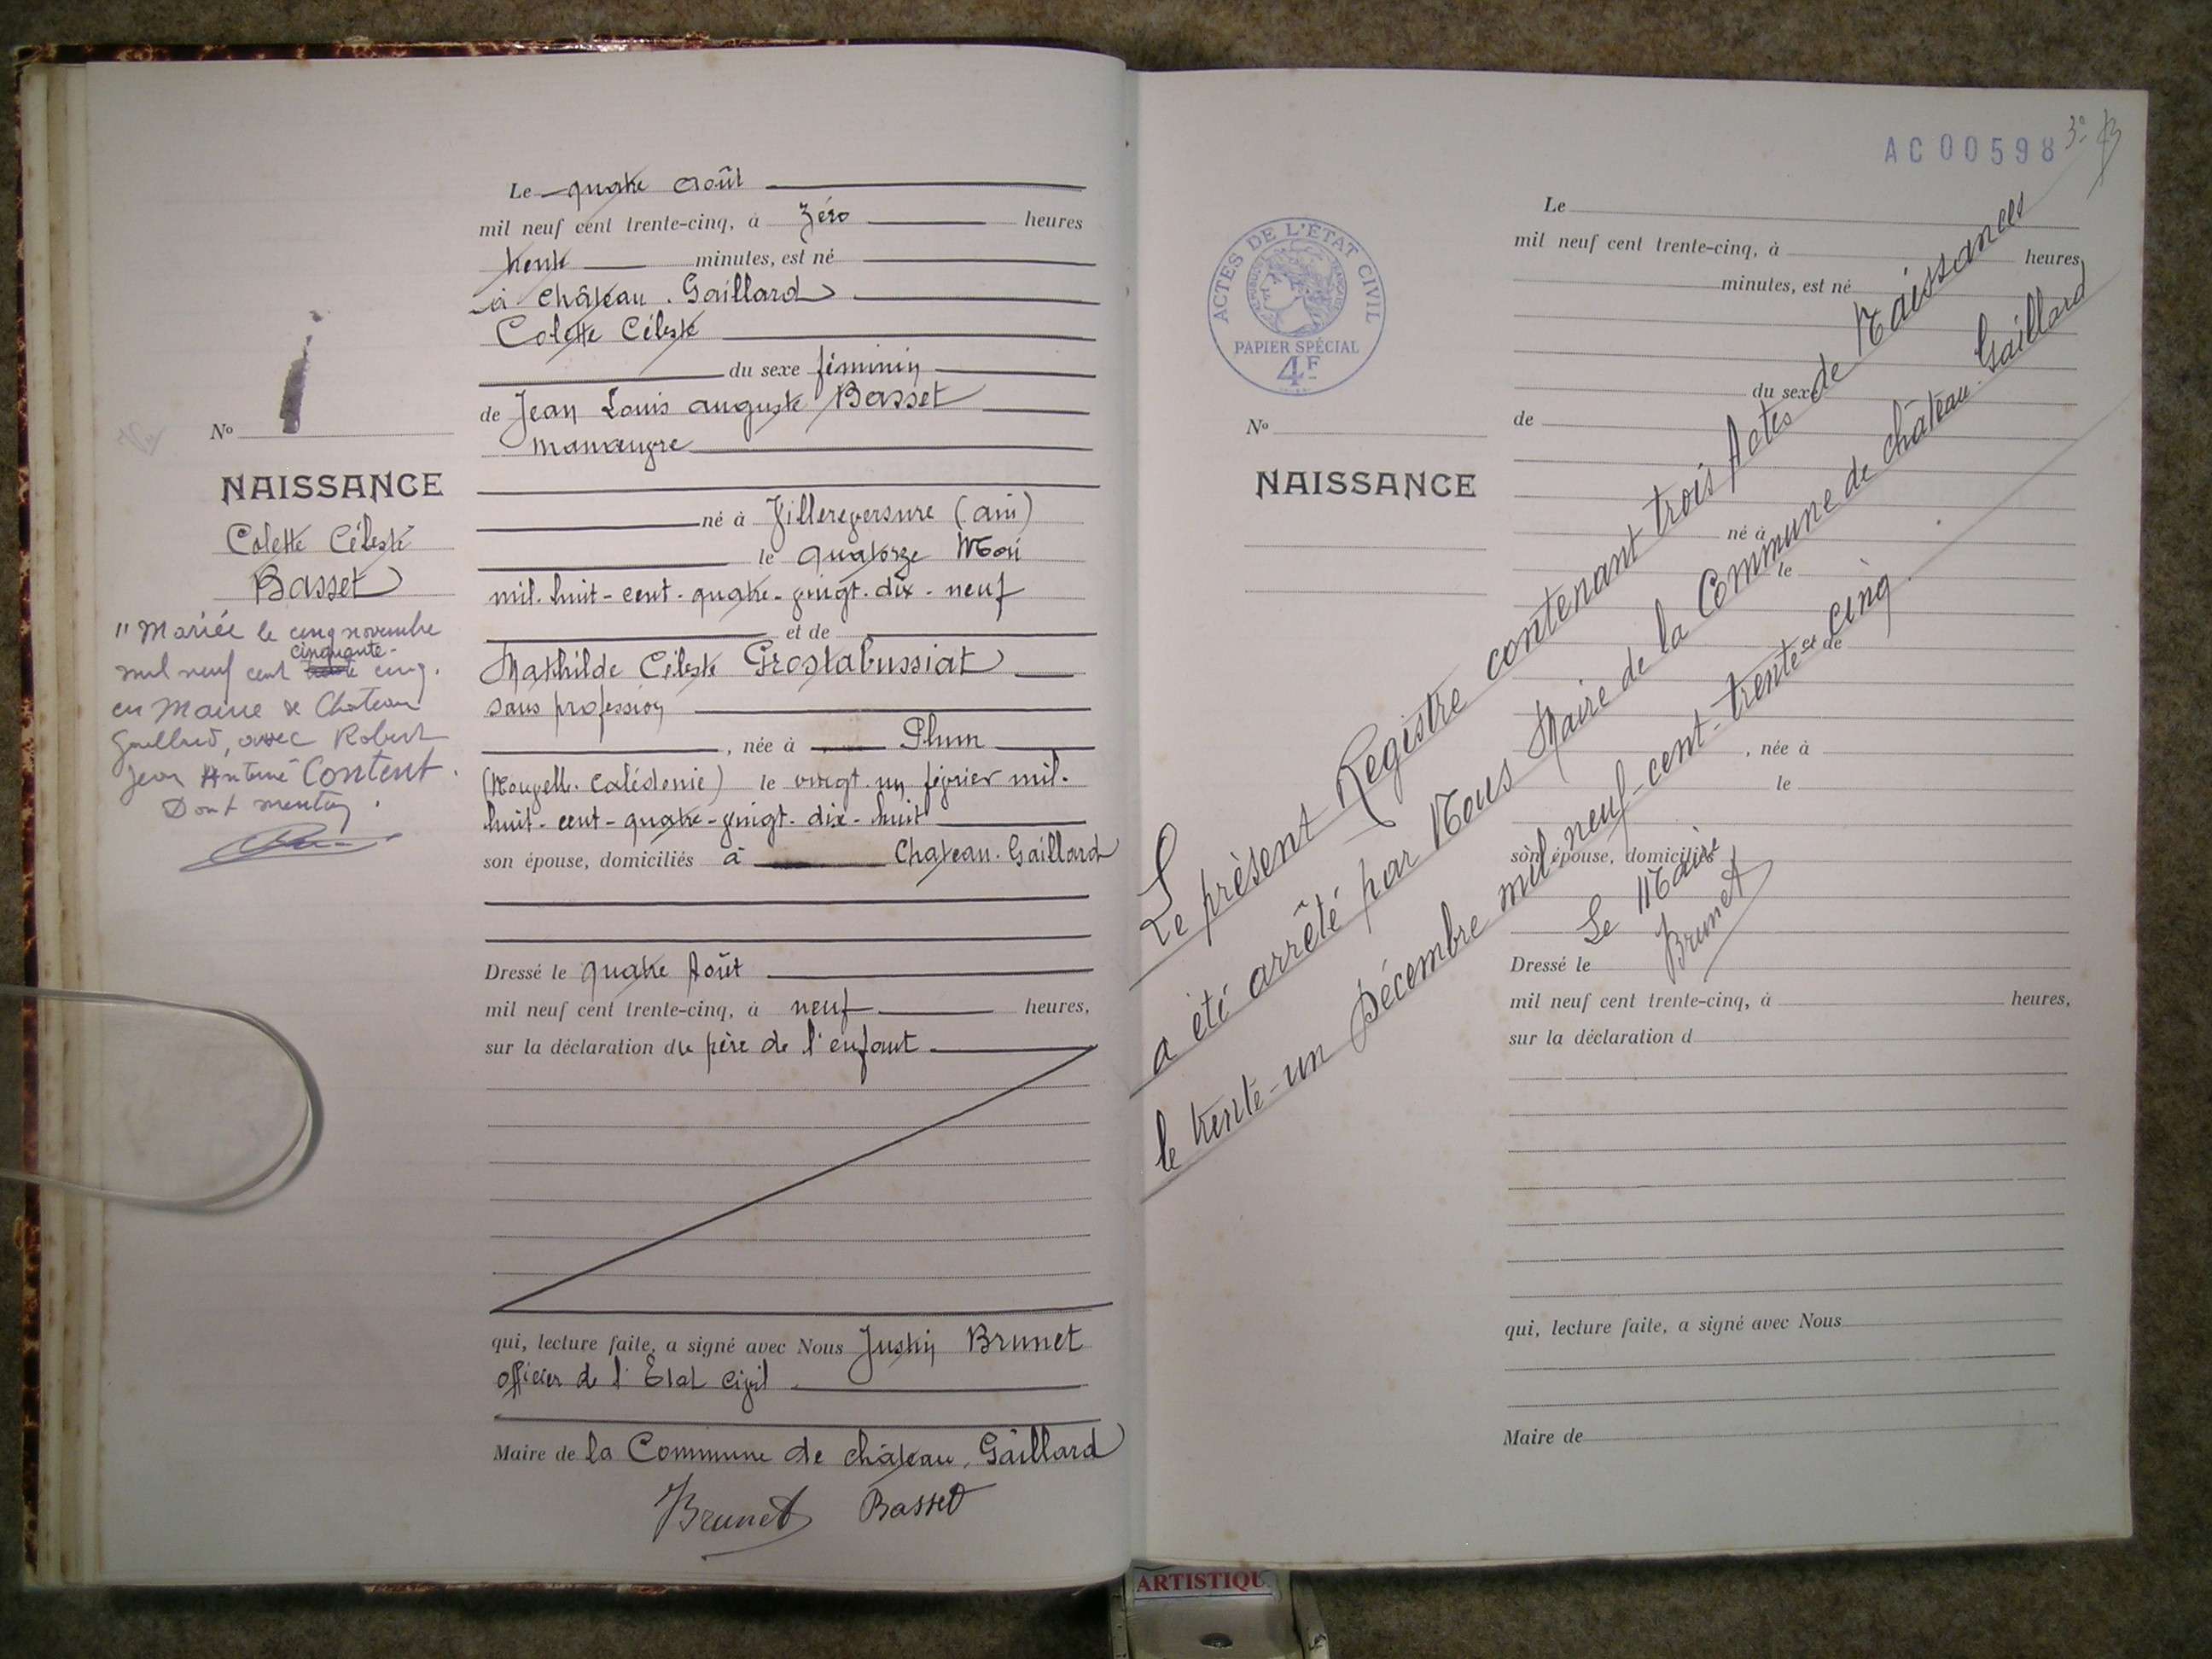 Le quatre août
mil neuf cent trente-cinq, à zéro heures
trente minutes, est né
à château. Gaillard
Colette Céleste
du sexe féminin
de Jean Louis auguste Basset
manœuvre
né à Villereversure (ain)
le quatorze Mai
mil. huit-cent-quatre-vingt-dix-neuf
et de
Mathilde Céleste Grostabussiat
sans profession
, née à Plum
(Nouvelle. Calédonie) le vingt. un février mil.
huit-cent-quatre-vingt-dix-huit
son épouse, domiciliés à Château. Gaillard
Dressé le quatre Août
mil neuf cent trente-cinq, à neuf heures,
sur la déclaration du père de l'enfant
qui, lecture faite, a signé avec Nous Justin Brunet
officier de l'Etat civil
Maire de la Commune de château. Gaillard
Brunet Basset
No
NAISSANCE
Colette Céleste
Basset
"Mariée le cinq novembre
cinquante-
mil neuf cent cinq.
en Mairie de Chateau
Gaillard, avec Robert
Jean Antoine Content.
Dont mention.
AC 00598 3e
ACTES DE L'ÉTAT CIVIL
RÉPUBLIQUE FRANÇAISE
PAPIER SPÉCIAL
4F
No
NAISSANCE
Le
mil neuf cent trente-cinq, à heures
minutes, est né
du sexe
de
né à
le
et de
, née à
le
son épouse, domiciliés
Dressé le
mil neuf cent trente-cinq, à heures,
sur la déclaration d
qui, lecture faite, a signé avec Nous
Maire de
Le présent Registre contenant trois Actes de Naissances
a été arrêté par Nous Maire de la Commune de château. Gaillard
le trente-un Décembre mil neuf-cent-trente-cinq.
Le Maire
Brunet
ARTISTIQU